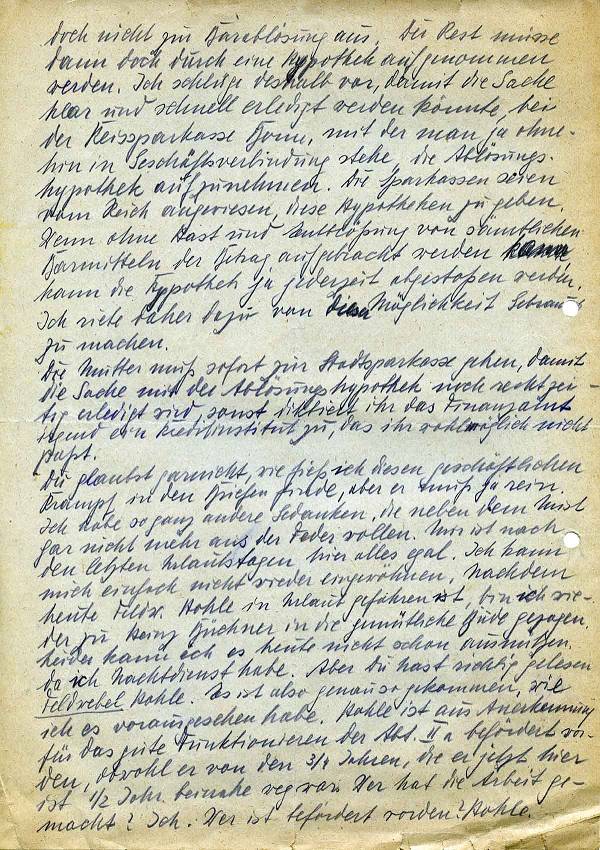 doch nicht zur Barablösung aus. Der Rest müsse
dann doch durch eine Hypothek aufgenommen
werden. Ich schlüge deshalb vor, damit die Sache
klar und schnell erledigt werden könnte, bei
der Kreissparkasse Borna, mit der man ja ohne-
hin in Geschäftsverbindung stehe, die Ablösungs-
hypothek aufzunehmen. Die Sparkassen seien
vom Reich angewiesen, diese Hypotheken zu geben.
Wenn ohne Hast und Entblößung von sämtlichen
Barmitteln der Betrag aufgebracht werden
kann die Hypothek ja jederzeit abgestoßen werden.
Ich riete daher dazu von dieser Möglichkeit Gebrauch
zu machen.
Die Mutter muß sofort zur Stadtsparkasse gehen, damit
die Sache mit der Ablösungshypothek noch rechtzei-
tig erledigt wird, sonst diktiert ihr das Finanzamt
irgend ein Kreditinstitut zu, das ihr wohlmöglich nicht
paßt.
Du glaubst garnicht, wie fies ich diesen geschäftlichen
Krampf in den Briefen finde, aber er muß ja rein.
Ich habe so ganz andere Gedanken, die neben dem Mist
gar nicht mehr aus der Feder wollen. Mir ist nach
den letzten Urlaubstagen hier alles egal. Ich kann
mich einfach nicht wieder eingewöhnen. Nachdem
heute Feldw. Kohle in Urlaub gefahren ist, bin ich wie-
der zu Heinz Büchner in die gemütliche Bude gezogen.
Leider kann ich es heute nicht schon ausnützen,
da ich Nachtdienst habe. Aber Du hast richtig gelesen
Feldwebel Kohle. Es ist also genauso gekommen, wie
ich es vorausgesehen habe. Kohle ist aus Anerkennung
für das gute Funktionieren der Abt. II a befördert wor-
den, obwohl er von den 3/4 Jahren, die er jetzt hier
ist 1/2 Jahr beinahe weg war. Wer hat die Arbeit ge-
macht? Ich. Wer ist befördert worden? Kohle.